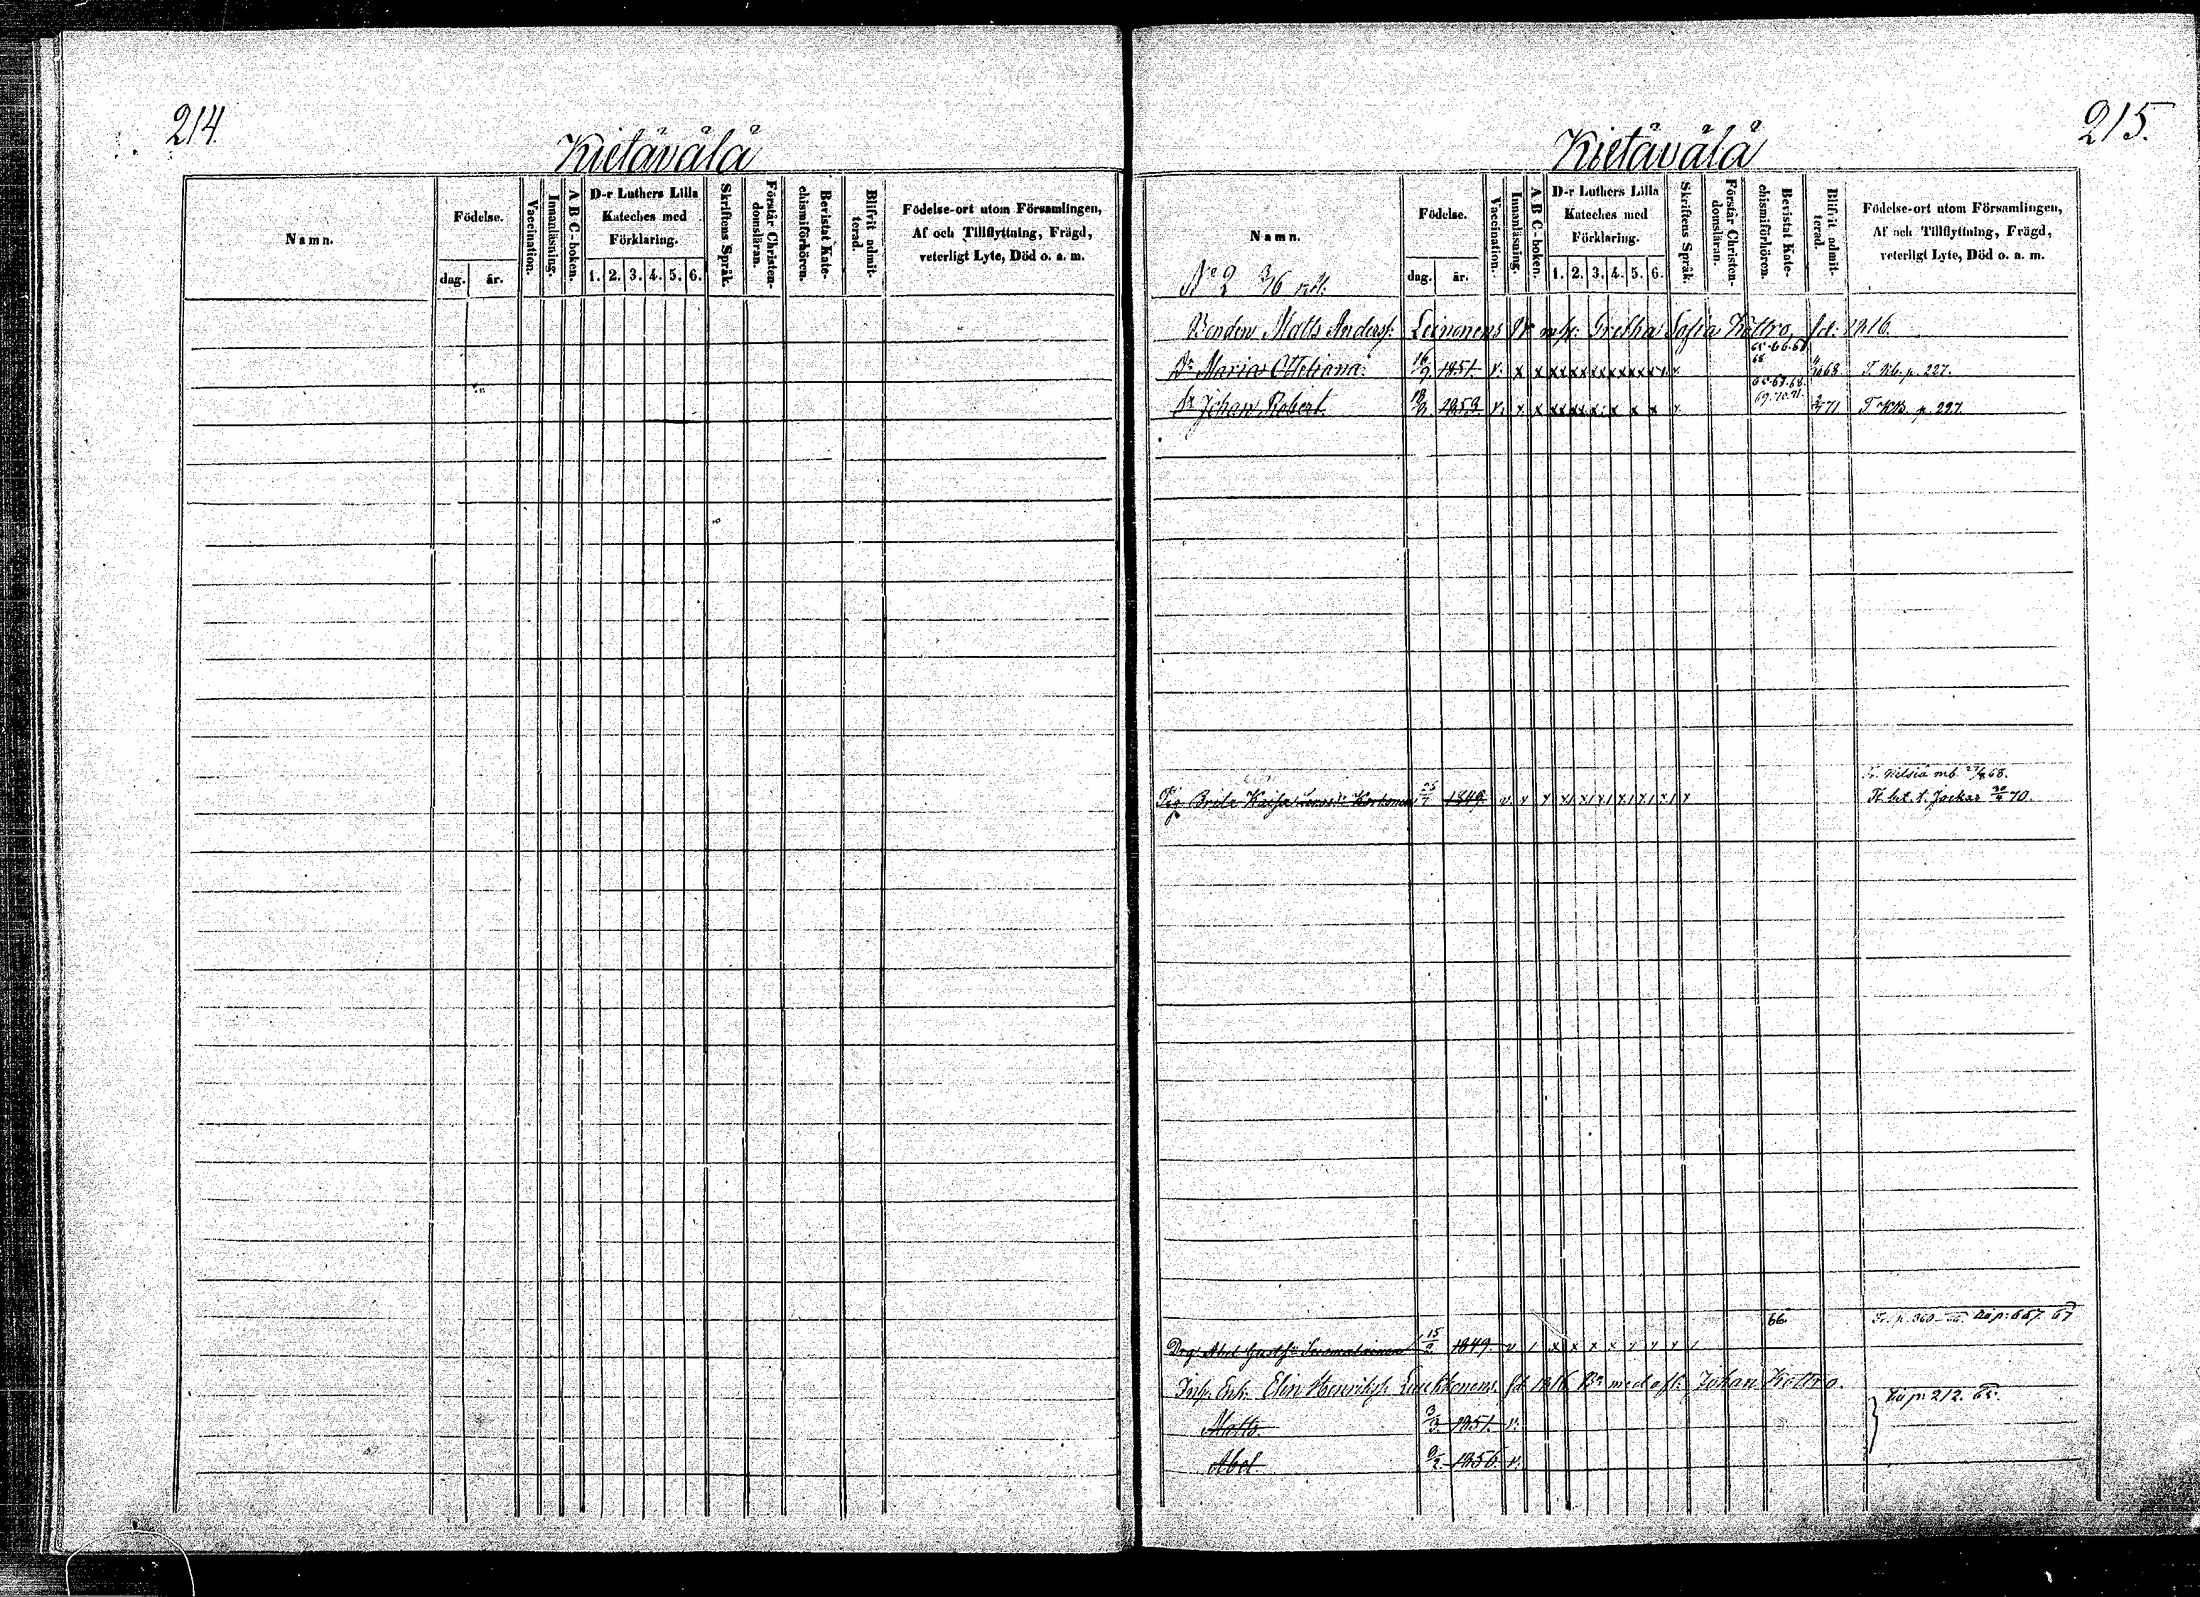 214.
Kietävälä
Namn.
Födelse.
dag.
år.
Vaccination.
Innanläsning.
A B C-boken.
D-r Luthers Lilla
Kateches med
Förklaring.
1. 2. 3. 4. 5. 6.
Skriftens Språk.
Förstår Christen-
domsläran.
Bevistat Kate-
chismiförhören.
Blifvit admit-
terad.
Födelse-ort utom Församlingen,
Af och Tillflyttning, Frägd,
veterligt Lyte, Död o. a. m.
215.
Kietävälä
Namn.
Födelse.
dag.
år.
Vaccination.
Innanläsning.
A B C-boken.
D-r Luthers Lilla
Kateches med
Förklaring.
1. 2. 3. 4. 5. 6.
Skriftens Språk.
Förstår Christen-
domsläran.
Bevistat Kate-
chismiförhören.
Blifvit admit-
terad.
Födelse-ort utom Församlingen,
Af och Tillflyttning, Frägd,
veterligt Lyte, Död o. a. m.
No 2
Bonden Matts Anders: Leinonens Dr Gretha Sofia Kottro, fd: 1816.
Dr Maria 16/9 1851. v. x x x x x x x x 68 T. Kb. p. 227.
Sr Johan Robert 1853 v. x x x x x x x 69.70.71. 71 T KB. p. 227.
Fr. Nilsiä mb 68.
Pig. Brita Kaisa Korhonen 1849. v. K bet. t. Jockas 70.
66.
Drg. Abel Gustaf Suomalainen 15/2 1849. v
Inh. Enk. Elin Henriks: Leukkonens fd 1816 med afl: Johan Kottro.
p. 212. 65.
Matts. 3/3 1851. v.
Abel. 9/2 1856. v.